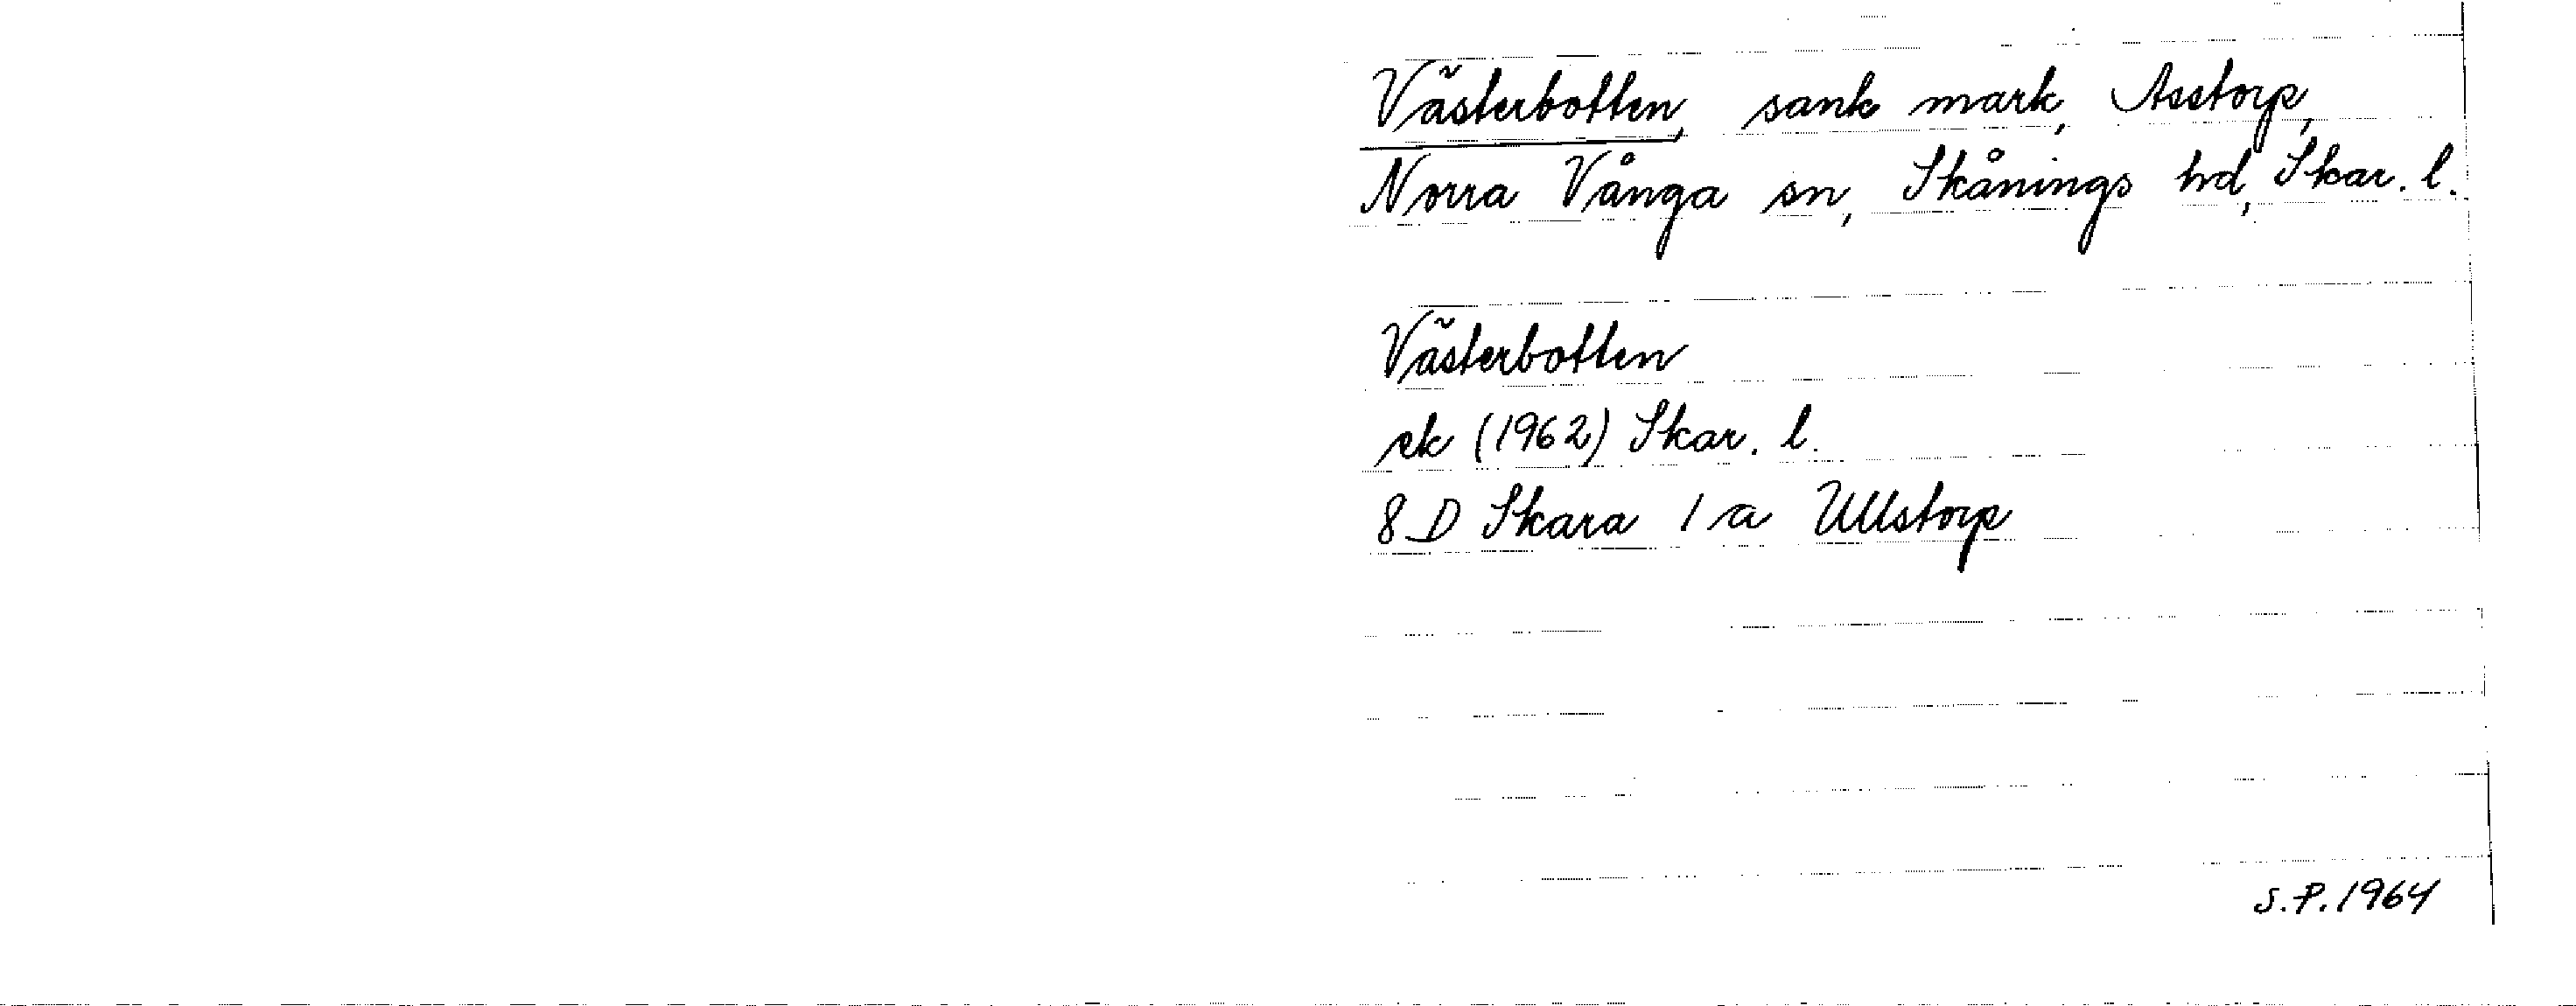 Västerbotten, sank mark, Asstorp,
Norra Vånga sn, Skånings hd, Skar. l.
Västerbotten
ek (1962) Skar. l.
8 D Skara 1 a Ullstorp
S.P. 1964